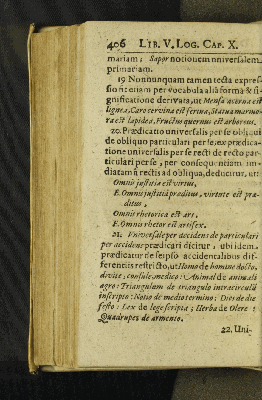 406 LIB. V. LOG. CAP. X.
mariam; Sapor notionem universalem,
primariam.
19 Nonnunquam tamen tecta expres-
sio fit etiam per vocabula alia forma & si-
gnificatione derivata, ut Mensa acerna est
lignea, Caro cervina est ferina, Statua marmo-
rea est lapidea, Fructus quernus est arboreus.
20. Prædicatio universalis per se obliqui
de obliquo particulari per se, ex prædica-
tione universalis per se recti de recto par-
ticulari per se, per consequentiam im-
diatam à rectis ad obliqua, deducitur, ut:
Omnis justitia est virtus,
E. Omnis justitia præditus, virtute est præ-
ditus,
Omnis rhetorica est ars,
E. Omnis rhetor est artifex.
21. Universale per accidens de particulari
per accidens prædicari dicitur, ubi idem
prædicatur de seipso accidentalibus dif-
ferentiis restricto, ut Homo de homine docto,
divite; consule medico: Animal de animali
agro: Triangulum de triangulo intra circulũ
inscripto: Notio de medio termino: Dies de die
festo: Lex de lege scripta; Herba de Olere:
Quadrupes de armento.
22. Uni-